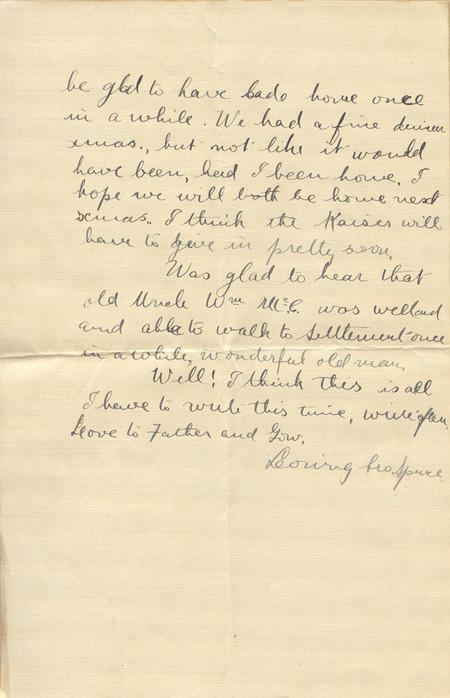 be glad to have Cado home once
in a while. We had a fine dinner
xmas., but not like it would
have been, had I been home, I
hope we will both be home next
xmas.. I think the Kaiser will
have to give in pretty soon.
Was glad to hear that
old Uncle Wm McC. was well and
and able to walk to settlement once
in a while, wonderful old man.
Well! I think this is all
I have to write this time, write often.
Love to Father and
Loving bro.